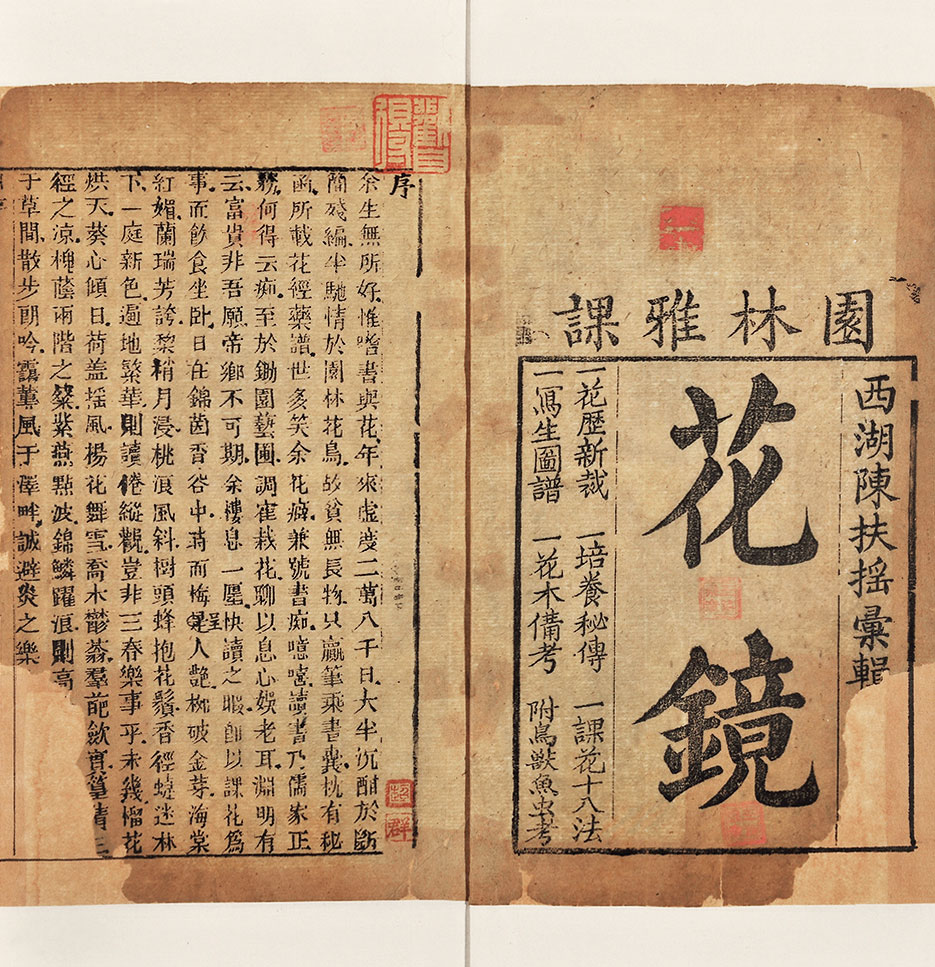 園林雅課
西湖陳扶搖彙輯
花鏡
一花歷新裁 一培養秘傳 一課花十八法
一寫生圖譜 一花木備考 附鳥獸魚虫考
序
余生無所好惟嗜書與花年來虛度二萬八千日大半沉酣於斷
簡殘編半馳情於園林花鳥故貧無長物只贏筆乘書囊枕有秘
函所載花經藥譜世多笑余花癖兼號書痴噫嘻讀書乃儒家正
務何得云痴至於鋤園藝圃調寉栽花聊以息心娛老耳淵明有
云富貴非吾願帝鄉不可期余棲息一廛快讀之暇卽以課花爲
事而飲食坐卧日在錦茵香谷中時而梅呈人艷柳破金芽海棠
紅媚蘭瑞芳誇梨梢月浸桃浪風斜樹頭蜂抱花鬚香徑蝶迷林
下一庭新色遍地繁華則讀倦縱觀豈非三春樂事乎未幾榴花
烘天葵心傾日荷盖搖風楊花舞雪喬木鬱蓊羣葩斂實篁清三
徑之凉槐蔭兩階之粲紫燕點波錦鱗躍浪則高
于草間散步朗吟霭薰風于澤畔誠避炎之樂
超群